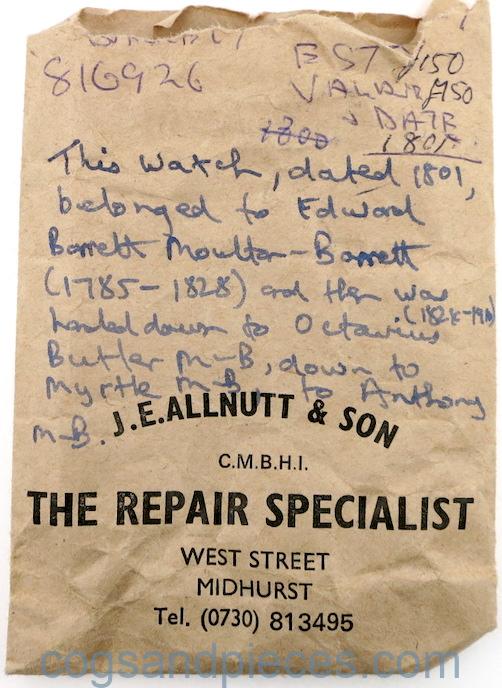 816926
EST £150
VALUE £150
& DATE
1800
1801
This watch, dated 1801,
belonged to Edward
Barrett Moulton-Barrett
(1785-1828) and then was
handed down to Octavius (1824-1910)
Butler M-B, down to
Myrtle M-B, to Anthony
M-B.
J.E.ALLNUTT & SON
C.M.B.H.I.
THE REPAIR SPECIALIST
WEST STREET
MIDHURST
Tel. (0730) 813495
cogsandpieces.com